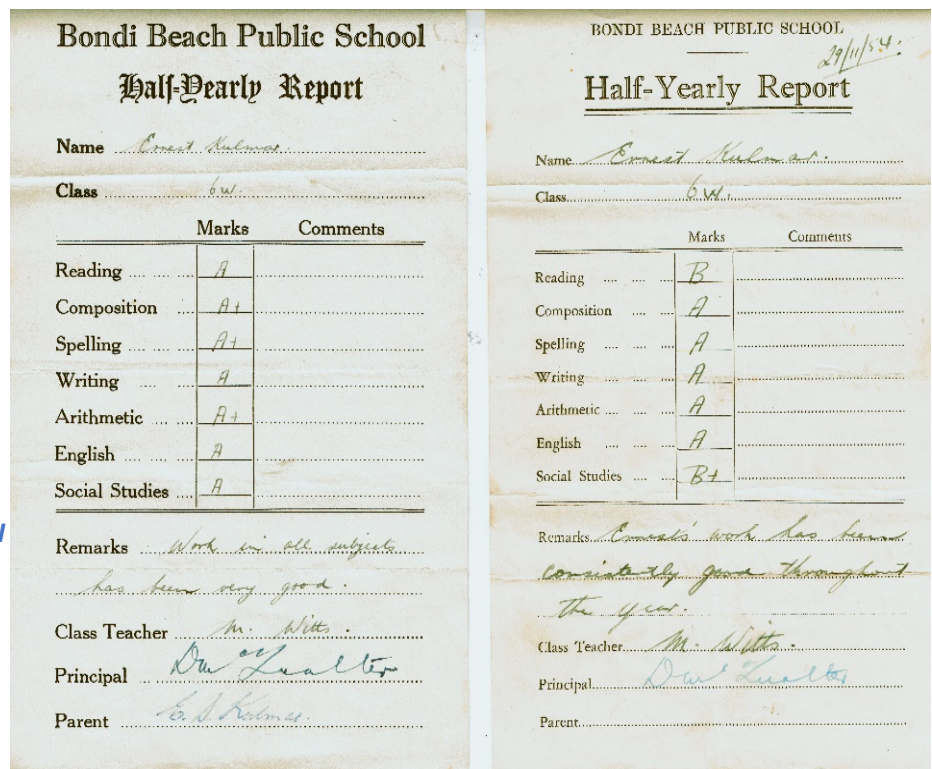 Bondi Beach Public School
Half-Yearly Report
Name Ernest Kulmar.
Class 6w.
Marks Comments
Reading A
Composition A+
Spelling A+
Writing A
Arithmetic A+
English A
Social Studies A
Remarks Work in all subjects
has been very good.
Class Teacher M. Witts.
Principal
Parent E. S. Kulmar.
BONDI BEACH PUBLIC SCHOOL
29/11/54.
Half-Yearly Report
Name Ernest Kulmar.
Class 6w.
Marks Comments
Reading B
Composition A
Spelling A
Writing A
Arithmetic A
English A
Social Studies B+
Remarks Ernest's work has been
consistently good throughout
the year.
Class Teacher M. Witts.
Principal
Parent